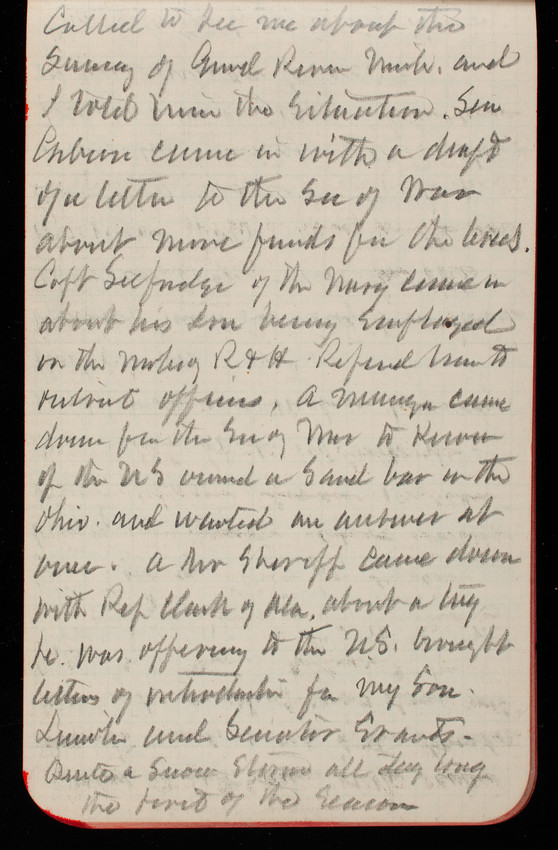 Called to see me about the
Survey of Grand River Mich. and
I told him the situation. Sen
Gibson came in with a draft
of a letter to the Sec of War
about more funds for the levees.
Capt Selfridge of the Navy came in
about his son being employed
on the Mobg R & H Referred him to
district officers. A messenger came
down from the Sec of War to know
if the US owned a Sand bar in the
Ohio. and wanted an answer at
once. A Mr Sheriff came down
with Rep Clark of Ala. about a tug
he was offering to the U.S. brought
letters of introduction from my Son.
Lincoln and Senator Evarts -
Quite a Snow Storm all day long
the first of the Season